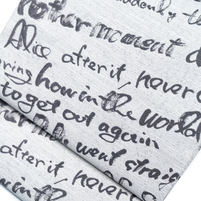 suddenly t
nother moment d
Alice after it, never
ring how in the world
to get out again
went straig
after it, never c
in the